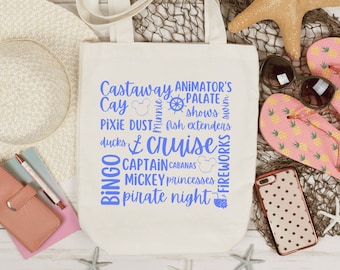 Castaway Cay
ANIMATOR'S PALATE
Minnie
shows
swim
PIXIE DUST
fish extenders
ducks
Cruise
CAPTAIN
CABANAS
BINGO
MICKEY
princesses
pirate night
FIREWORKS